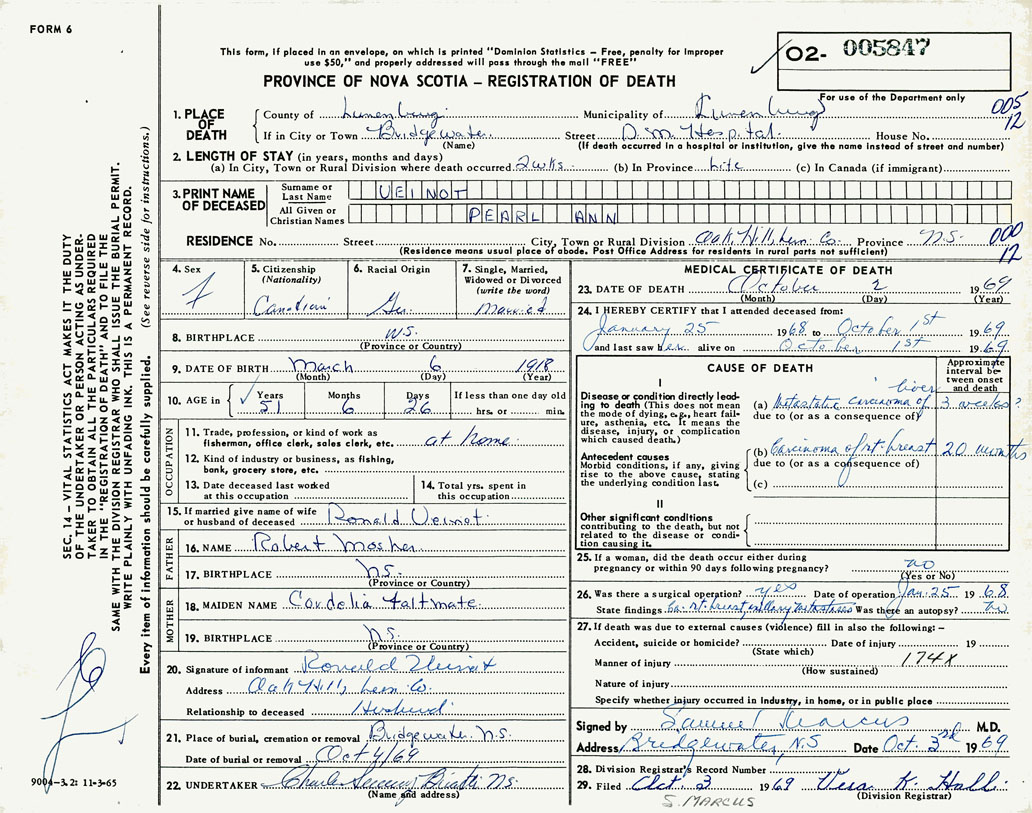 FORM 6
This form, if placed in an envelope, on which is printed "Dominion Statistics – Free, penalty for improper
use $50," and properly addressed will pass through the mail "FREE"
PROVINCE OF NOVA SCOTIA – REGISTRATION OF DEATH
O2- 005847
For use of the Department only
005
12
1. PLACE OF DEATH
County of Lunenburg Municipality of Lunenburg
If in City or Town Bridgewater Street D.M. Hospital House No.
(Name) (If death occurred in a hospital or institution, give the name instead of street and number)
2. LENGTH OF STAY (in years, months and days)
(a) In City, Town or Rural Division where death occurred 2 wks. (b) In Province Life (c) In Canada (if immigrant)
3. PRINT NAME OF DECEASED
Surname or Last Name VEINOT
All Given or Christian Names PEARL ANN
RESIDENCE No. Street City, Town or Rural Division Oak Hill, Lun. Co. Province N.S.
(Residence means usual place of abode. Post Office Address for residents in rural parts not sufficient)
000
12
4. Sex F
5. Citizenship (Nationality) Canadian
6. Racial Origin Ger.
7. Single, Married, Widowed or Divorced (write the word) Married
8. BIRTHPLACE N.S.
(Province or Country)
9. DATE OF BIRTH March 6 1918
(Month) (Day) (Year)
10. AGE in Years 51 Months 6 Days 26 If less than one day old hrs. or min.
OCCUPATION
11. Trade, profession, or kind of work as fisherman, office clerk, sales clerk, etc. at home
12. Kind of industry or business, as fishing, bank, grocery store, etc.
13. Date deceased last worked at this occupation
14. Total yrs. spent in this occupation
15. If married give name of wife or husband of deceased Ronald Veinot
FATHER
16. NAME Robert Mosher
17. BIRTHPLACE N.S.
(Province or Country)
MOTHER
18. MAIDEN NAME Cordelia
19. BIRTHPLACE N.S.
(Province or Country)
20. Signature of informant Ronald Veinot
Address Oak Hill, Lun. Co.
Relationship to deceased Husband
21. Place of burial, cremation or removal Bridgewater N.S.
Date of burial or removal Oct 4/69
22. UNDERTAKER N.S.
(Name and address)
MEDICAL CERTIFICATE OF DEATH
23. DATE OF DEATH October 2 1969
(Month) (Day) (Year)
24. I HEREBY CERTIFY that I attended deceased from:
January 25 1968 to October 1st 1969
and last saw her alive on October 1st 1969
CAUSE OF DEATH
Approximate interval between onset and death
I
Disease or condition directly leading to death (This does not mean the mode of dying, e.g., heart failure, asthenia, etc. It means the disease, injury, or complication which caused death.)
(a) Metastatic carcinoma of liver 3 weeks?
due to (or as a consequence of)
Antecedent causes
Morbid conditions, if any, giving rise to the above cause, stating the underlying condition last.
(b) Carcinoma of rt. breast 20 months
due to (or as a consequence of)
(c)
II
Other significant conditions
contributing to the death, but not related to the disease or condition causing it.
25. If a woman, did the death occur either during
pregnancy or within 90 days following pregnancy? no
(Yes or No)
26. Was there a surgical operation? yes Date of operation Jan. 25 1968
State findings Ca. rt. breast axillary metastases Was there an autopsy? no
27. If death was due to external causes (violence) fill in also the following: –
Accident, suicide or homicide? Date of injury 19
(State which)
Manner of injury 174X
(How sustained)
Nature of injury
Specify whether injury occurred in Industry, in home, or in public place
Signed by Samuel Marcus M.D.
Address Bridgewater, N.S Date Oct. 3rd 1969
28. Division Registrar's Record Number
29. Filed Oct. 3 1969 Vera K. Hall
(Division Registrar)
S. MARCUS
SEC. 14 – VITAL STATISTICS ACT MAKES IT THE DUTY
OF THE UNDERTAKER OR PERSON ACTING AS UNDER-
TAKER TO OBTAIN ALL THE PARTICULARS REQUIRED
IN THE "REGISTRATION OF DEATH" AND TO FILE THE
SAME WITH THE DIVISION REGISTRAR WHO SHALL ISSUE THE BURIAL PERMIT.
WRITE PLAINLY WITH UNFADING INK. THIS IS A PERMANENT RECORD.
Every item of information should be carefully supplied. (See reverse side for instructions.)
9004-3.2: 11-3-65